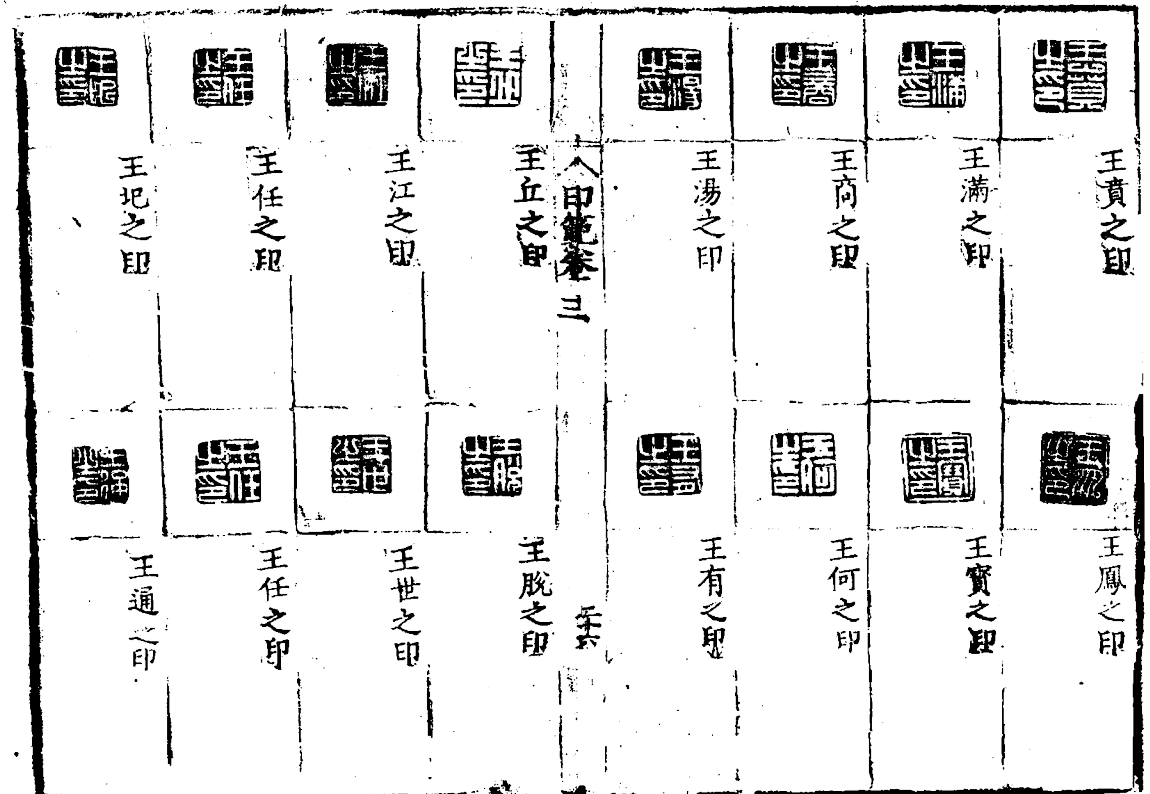 王賁之印
王滿之印
王商之印
王湯之印
王鳳之印
王寳之印
王何之印
王有之印
印範卷三
二十六
王丘之印
王江之印
王任之印
王圯之印
王脫之印
王世之印
王任之印
王通之印